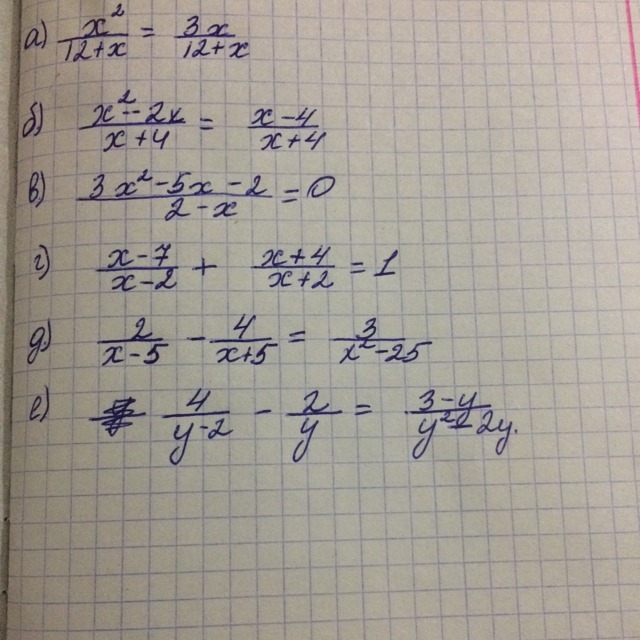 а) x²/(12+x) = 3x/(12+x)
б) (x²-2x)/(x+4) = (x-4)/(x+4)
в) (3x²-5x-2)/(2-x) = 0
г) (x-7)/(x-2) + (x+4)/(x+2) = 1
д) 2/(x-5) - 4/(x+5) = 3/(x²-25)
е) 4/(y-2) - 2/y = (3-y)/(y²-2y).